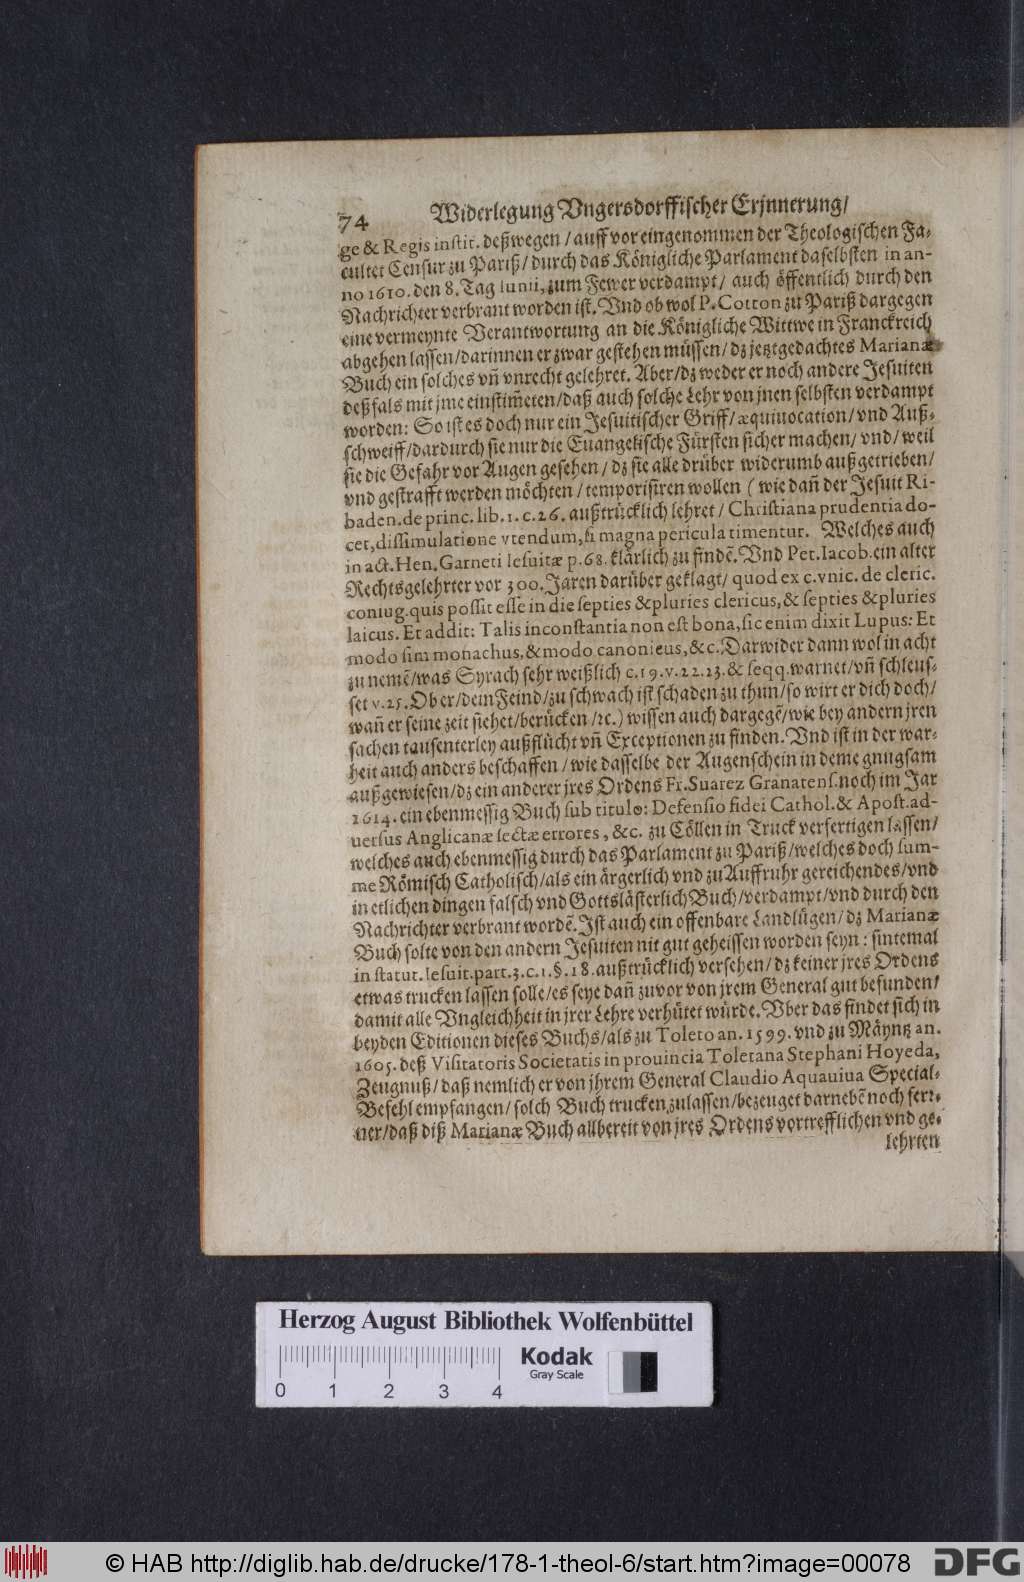 74 Widerlegung Vngersdorffischer Erjnnerung/
ge & Regis instit. deßwegen / auff vor eingenommen der Theologischen Fa-
cultet Censur zu Pariß / durch das Königliche Parlament daselbsten in an-
no 1610. den 8. Tag Iunii, zum Fewer verdampt / auch öffentlich durch den
Nachrichter verbrant worden ist. Vnd ob wol P. Cotton zu Pariß dargegen
eine vermeynte Verantwortung an die Königliche Wittwe in Franckreich
abgehen lassen/darinnen er zwar gestehen müssen/ dz jetztgedachtes Marianæ
Buch ein solches vñ vnrecht gelehret. Aber/dz weder er noch andere Jesuiten
deßfals mit jme einstim̃eten/daß auch solche Lehr von jnen selbsten verdampt
worden: So ist es doch nur ein Jesuitischer Griff/ æquiuocation/ vnd Auß-
schweiff/dardurch sie nur die Euangelische Fürsten sicher machen/ vnd/ weil
sie die Gefahr vor Augen gesehen / dz sie alle drüber widerumb außgetrieben/
vnd gestrafft werden möchten / temporisiren wollen ( wie dañ der Jesuit Ri-
baden. de princ. lib. 1. c. 26. außtrücklich lehret / Christiana prudentia do-
cet, dissimulatione vtendum, si magna pericula timentur. Welches auch
in act. Hen. Garneti Iesuitæ p. 68. klärlich zu findẽ. Vnd Pet. Iacob. ein alter
Rechtsgelehrter vor 300. Jaren darüber geklagt/ quod ex c. vnic. de cleric.
coniug. quis possit esse in die septies & pluries clericus, & septies & pluries
laicus. Et addit: Talis inconstantia non est bona, sic enim dixit Lupus: Et
modo sim monachus, & modo canonicus, &c. Darwider dann wol in acht
zu nemẽ/was Syrach sehr weißlich c. 19. v. 22. 23. & seqq. warnet/vñ schleus-
set v. 25. Ober/dein Feind/zu schwach ist schaden zu thun/so wirt er dich doch/
wañ er seine zeit siehet/berücken /ꝛc.) wissen auch dargegẽ/wie bey andern jren
sachen tausenterley außflücht vñ Exceptionen zu finden. Vnd ist in der war-
heit auch anders beschaffen / wie dasselbe der Augenschein in deme gnugsam
außgewiesen/dz ein anderer jres Ordens Fr. Suarez Granatens. noch im Jar
1614. ein ebenmessig Buch sub titulo: Defensio fidei Cathol. & Apost. ad-
uersus Anglicanæ sectæ errores, &c. zu Cöllen in Truck verfertigen lassen/
welches auch ebenmessig durch das Parlament zu Pariß/welches doch sum-
me Römisch Catholisch/als ein ärgerlich vnd zu Auffruhr gereichendes/vnd
in etlichen dingen falsch vnd Gottslästerlich Buch/verdampt/vnd durch den
Nachrichter verbrant wordẽ. Ist auch ein offenbare Landlügen/ dz Marianæ
Buch solte von den andern Jesuiten nit gut geheissen worden seyn: sintemal
in statut. Iesuit. part. 3. c. 1. §. 18. außtrücklich versehen/ dz keiner jres Ordens
etwas trucken lassen solle/es seye dañ zuvor von jrem General gut befunden/
damit alle Vngleichheit in jrer Lehre verhütet würde. Vber das findet sich in
beyden Editionen dieses Buchs/als zu Toleto an. 1599. vnd zu Mäyntz an.
1605. deß Visitatoris Societatis in prouincia Toletana Stephani Hoyeda,
Zeugnuß/ daß nemlich er von jhrem General Claudio Aquauiua Special-
Befehl empfangen/ solch Buch trucken zulassen/ bezeuget darnebẽ noch fer2-
ner/daß diß Marianæ Buch allbereit von jres Ordens vortrefflichen vnd ge-
lehrten
Herzog August Bibliothek Wolfenbüttel
Kodak
Gray Scale
0 1 2 3 4
© HAB http://diglib.hab.de/drucke/178-1-theol-6/start.htm?image=00078
DFG